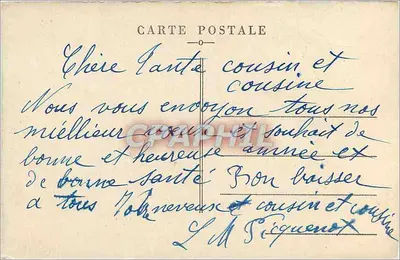 CARTE POSTALE
Chère Tante cousin et
cousine
Nous vous envoyon tous nos
miéllieur voeux et souhait de
bonne et heureuse année ex
de bonne santé Bon baisser
a tous neveux et cousin et cousine
L M Picquenot